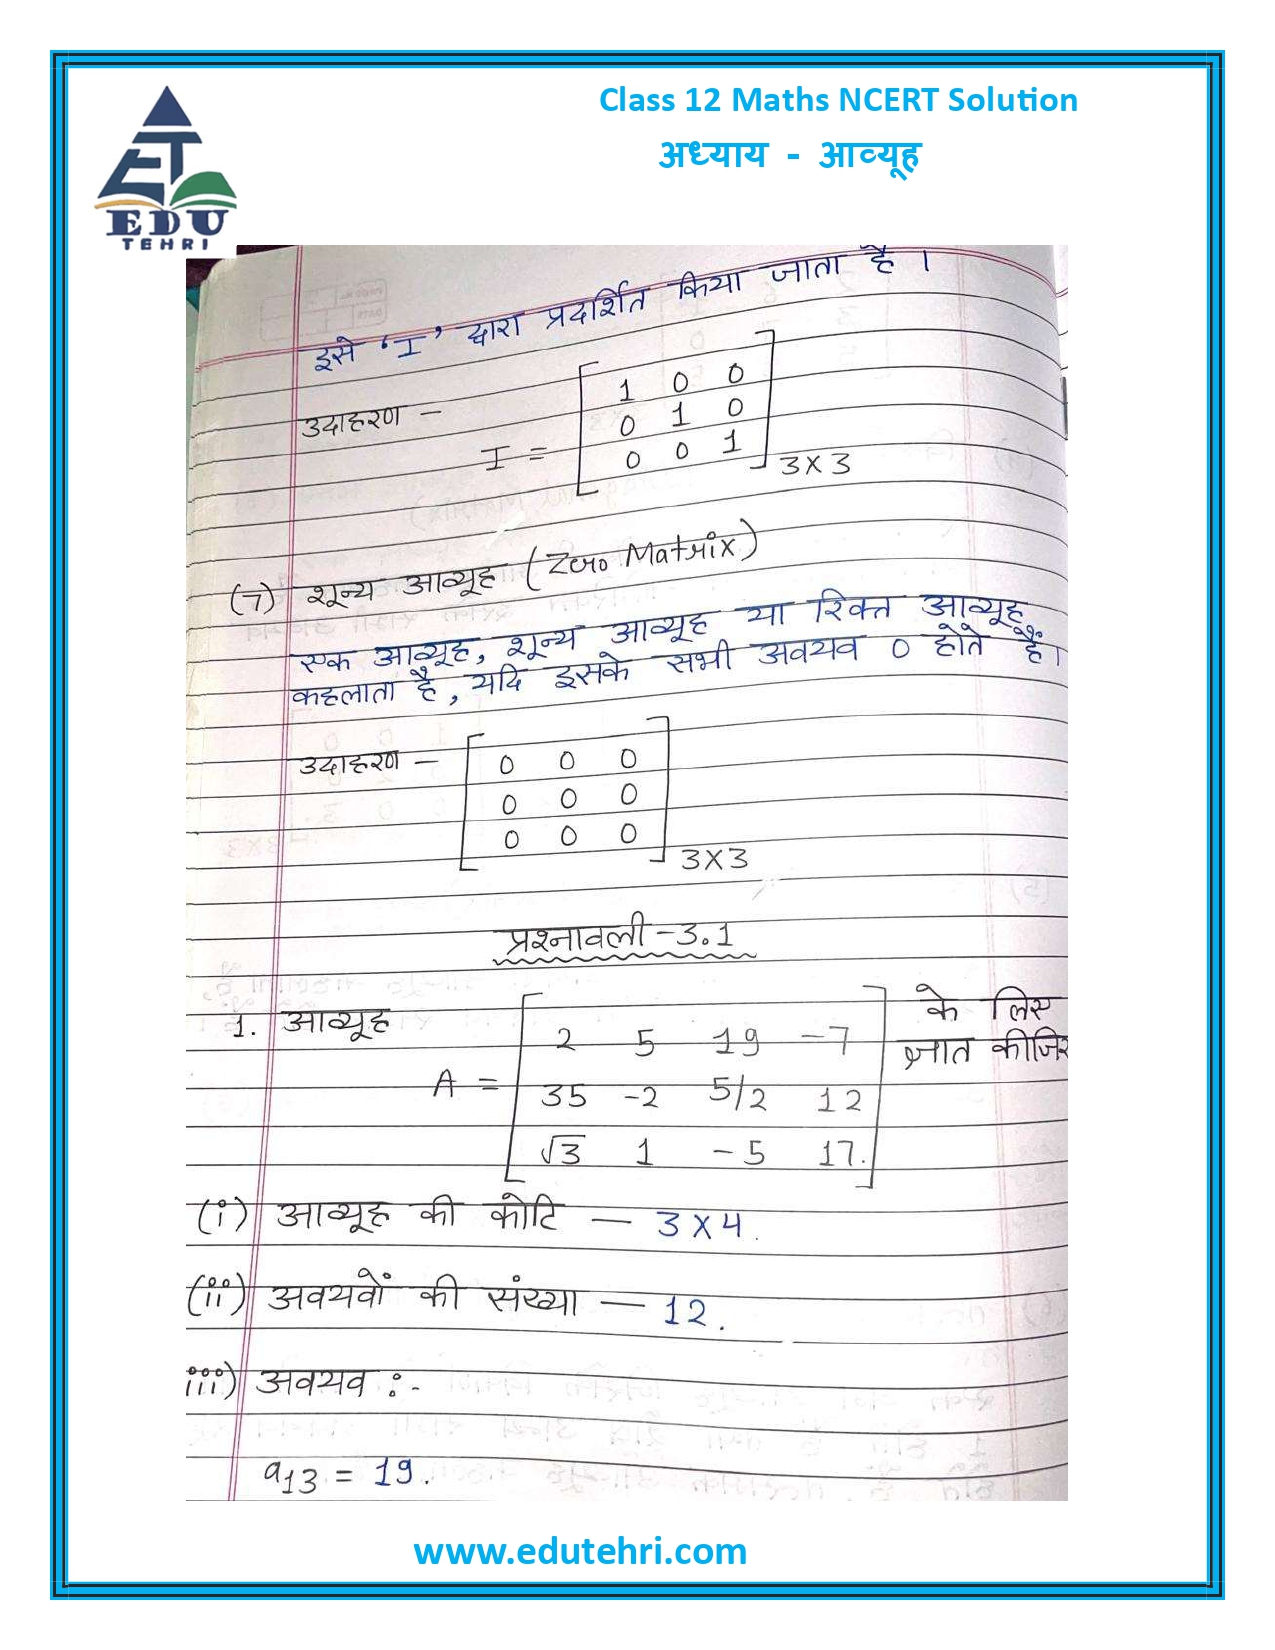 Class 12 Maths NCERT Solution
अध्याय - आव्यूह
EDU
TEHRI
इसे 'I' द्वारा प्रदर्शित किया जाता है ।
उदाहरण -
I = [ 1 0 0
0 1 0
0 0 1 ] 3×3
(7) शून्य आव्यूह (Zero Matrix)
एक आव्यूह, शून्य आव्यूह या रिक्त आव्यूह
कहलाता है, यदि इसके सभी अवयव 0 होते हैं।
उदाहरण - [ 0 0 0
0 0 0
0 0 0 ] 3×3
प्रश्नावली-3.1
1. आव्यूह के लिए
ज्ञात कीजिए
A = [ 2 5 19 -7
35 -2 5/2 12
√3 1 -5 17. ]
(i) आव्यूह की कोटि — 3×4.
(ii) अवयवों की संख्या — 12.
iii) अवयव :-
a13 = 19.
www.edutehri.com